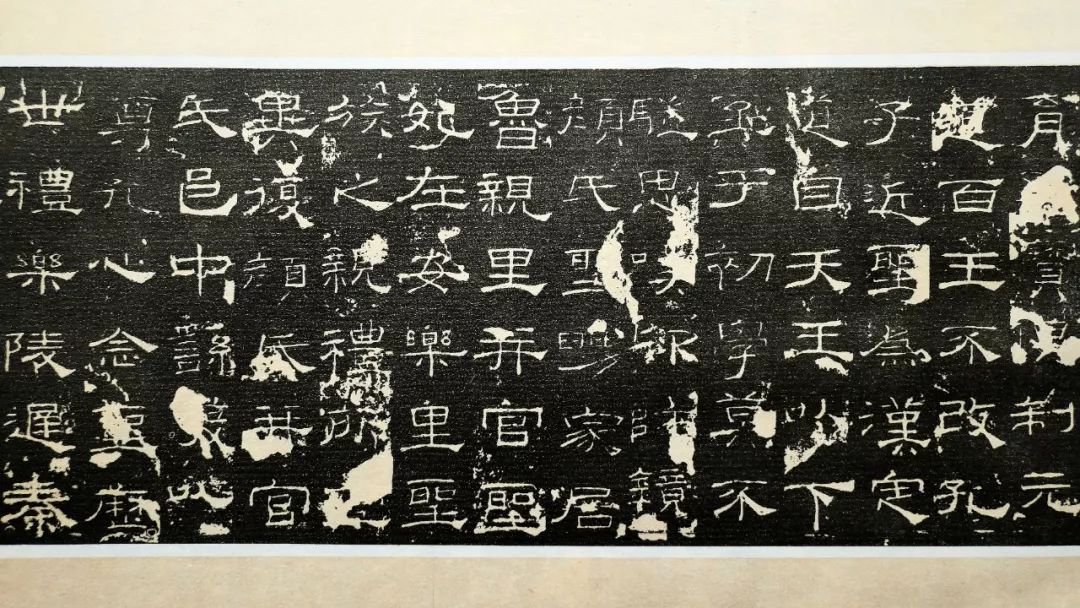 育寶俱制元
道百王不改孔
子近聖為漢定
道自天王以下
至于初學莫不
驥思嘆卬師鏡
顏氏聖舅家居
魯親里并官聖
妃在安樂里聖
族之親禮所宜
異復顏氏并官
氏邑中繇發以
尊孔心念聖歷
世禮樂陵遲秦